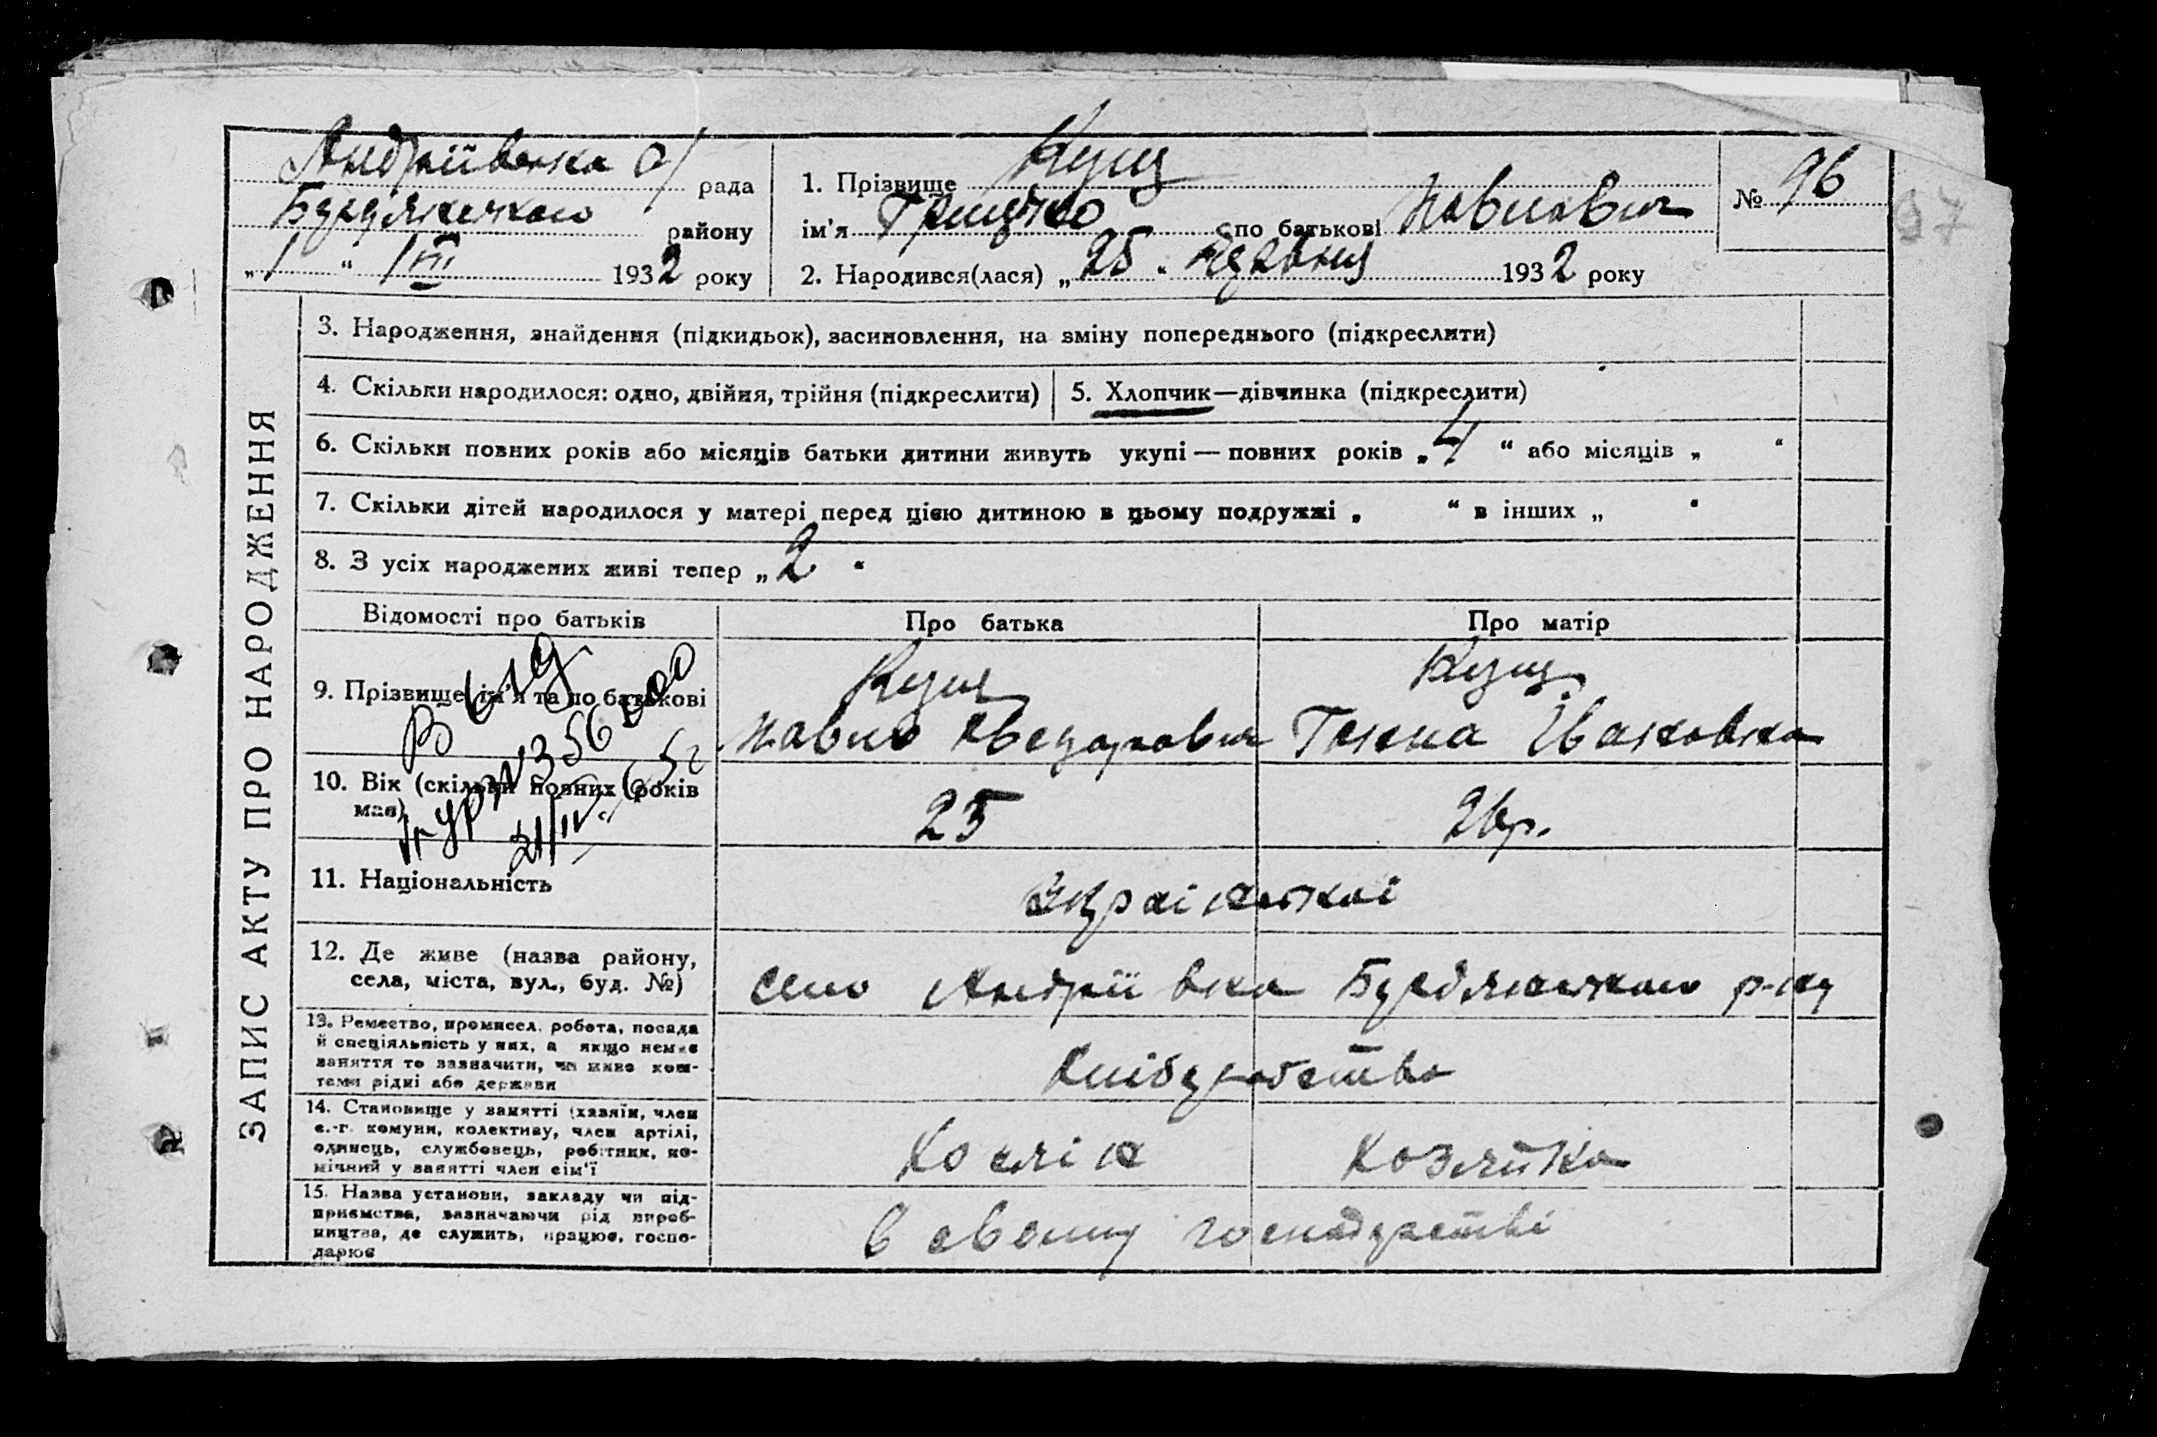 Андріївська с/ рада
Бердянського району
„ 1 “ VIII 1932 року
1. Прізвище Куц
ім'я Грицько по батькові Павлович
№ 96
97
2. Народився(лася) „ 25 “ червня 1932 року
ЗАПИС АКТУ ПРО НАРОДЖЕННЯ
3. Народження, знайдення (підкидьок), засиновлення, на зміну попереднього (підкреслити)
4. Скільки народилося: одно, двійня, трійня (підкреслити)
5. Хлопчик—дівчинка (підкреслити)
6. Скільки повних років або місяців батьки дитини живуть укупі — повних років „ 4 “ або місяців „ “
7. Скільки дітей народилося у матері перед цією дитиною в цьому подружжі „ “ в інших „ “
8. З усіх народжених живі тепер „ 2 “
Відомості про батьків
Про батька
Про матір
9. Прізвище, ім'я та по батькові
Куц
Павло Хведорович
Куц
Ганна Іванівна
10. Вік (скільки повних років має)
25
26 р.
11. Національність
Української
12. Де живе (назва району,
села, міста, вул., буд. №)
село Андріївка Бердянського р-ну
13. Ремество, промисел, робота, посада
й спеціяльність у них, а якщо немає
заняття то зазначити, чи живе кош-
тами рідні або держави
Хліборобство
14. Становище у занятті (хазяїн, член
с.-г. комуни, колективу, член артілі,
одинець, службовець, робітник, по-
мічний у занятті член сім'ї
Хозяїн
Хозяйка
15. Назва установи, закладу чи під-
приємства, зазначаючи рід вироб-
ництва, де служить, працює, госпо-
дарює
в своему господарстві